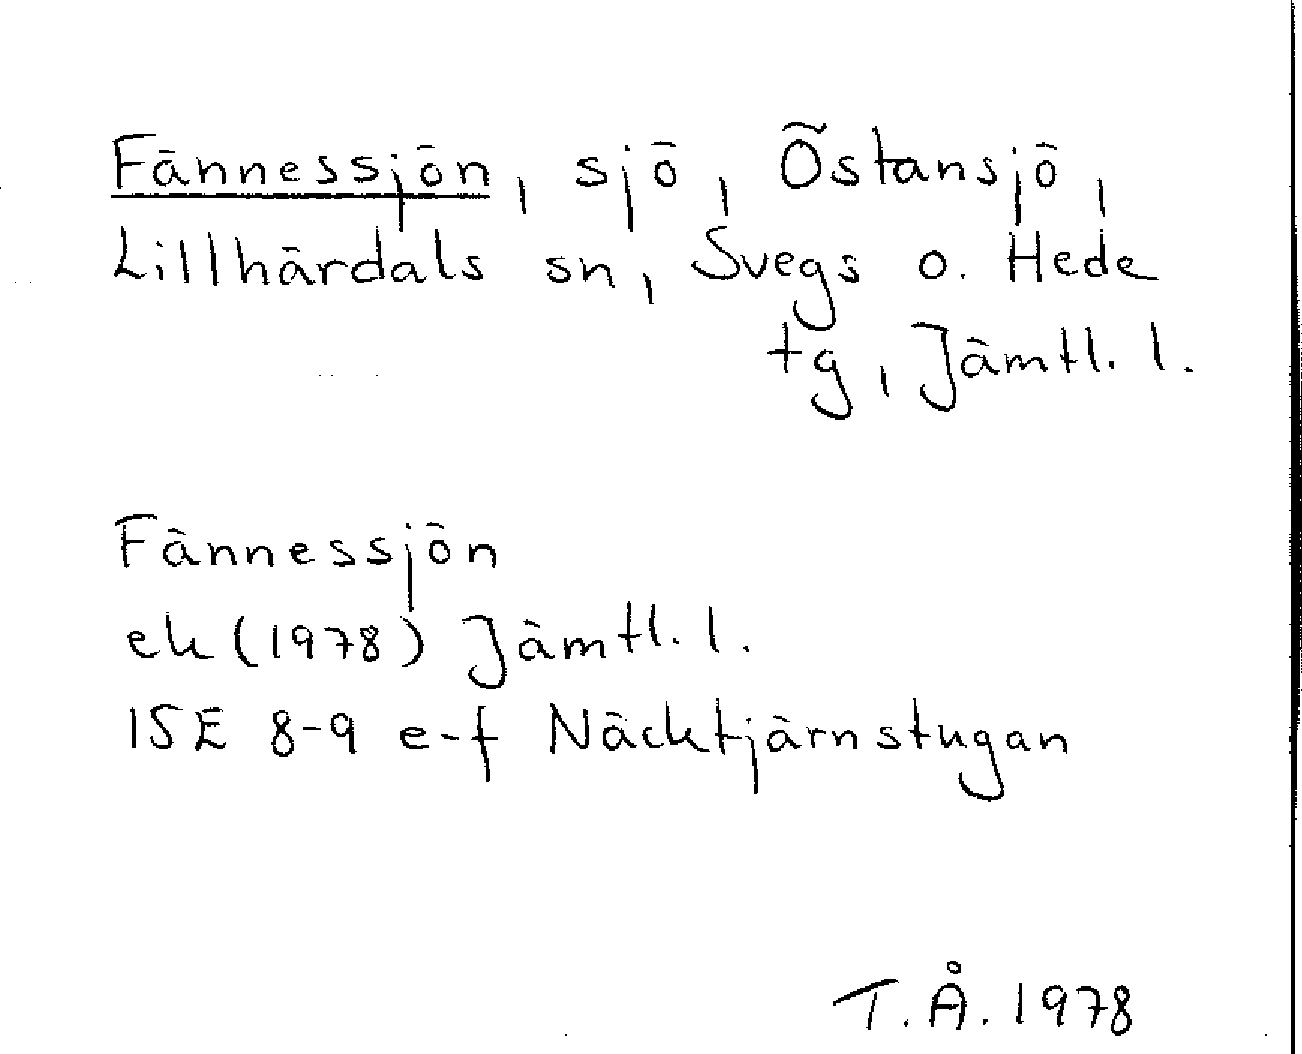 Fännessjön, sjö, Östansjö,
Lillhärdals sn, Svegs o. Hede
tg, Jämtl. l.
Fännessjön
ek (1978) Jämtl. l.
15E 8-9 e-f Näcktjärnstugan
T. Å. 1978